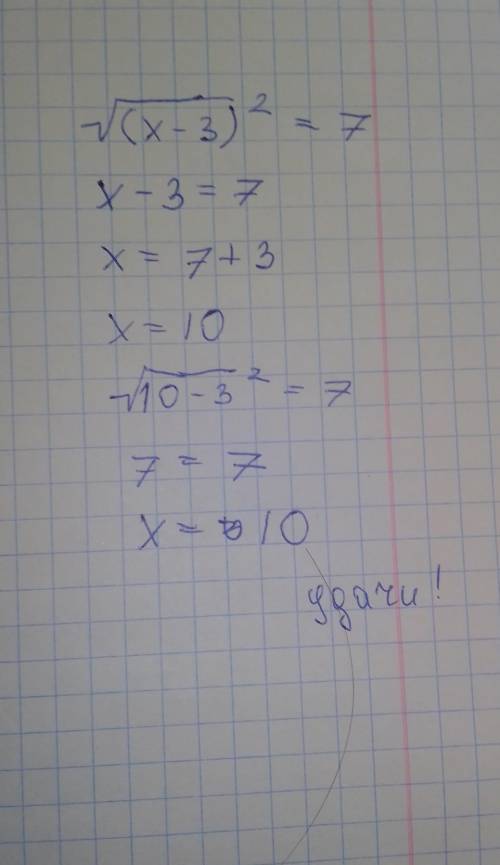 √(x-3)² = 7
x - 3 = 7
x = 7 + 3
x = 10
√10-3² = 7
7 = 7
x = 10
удачи!